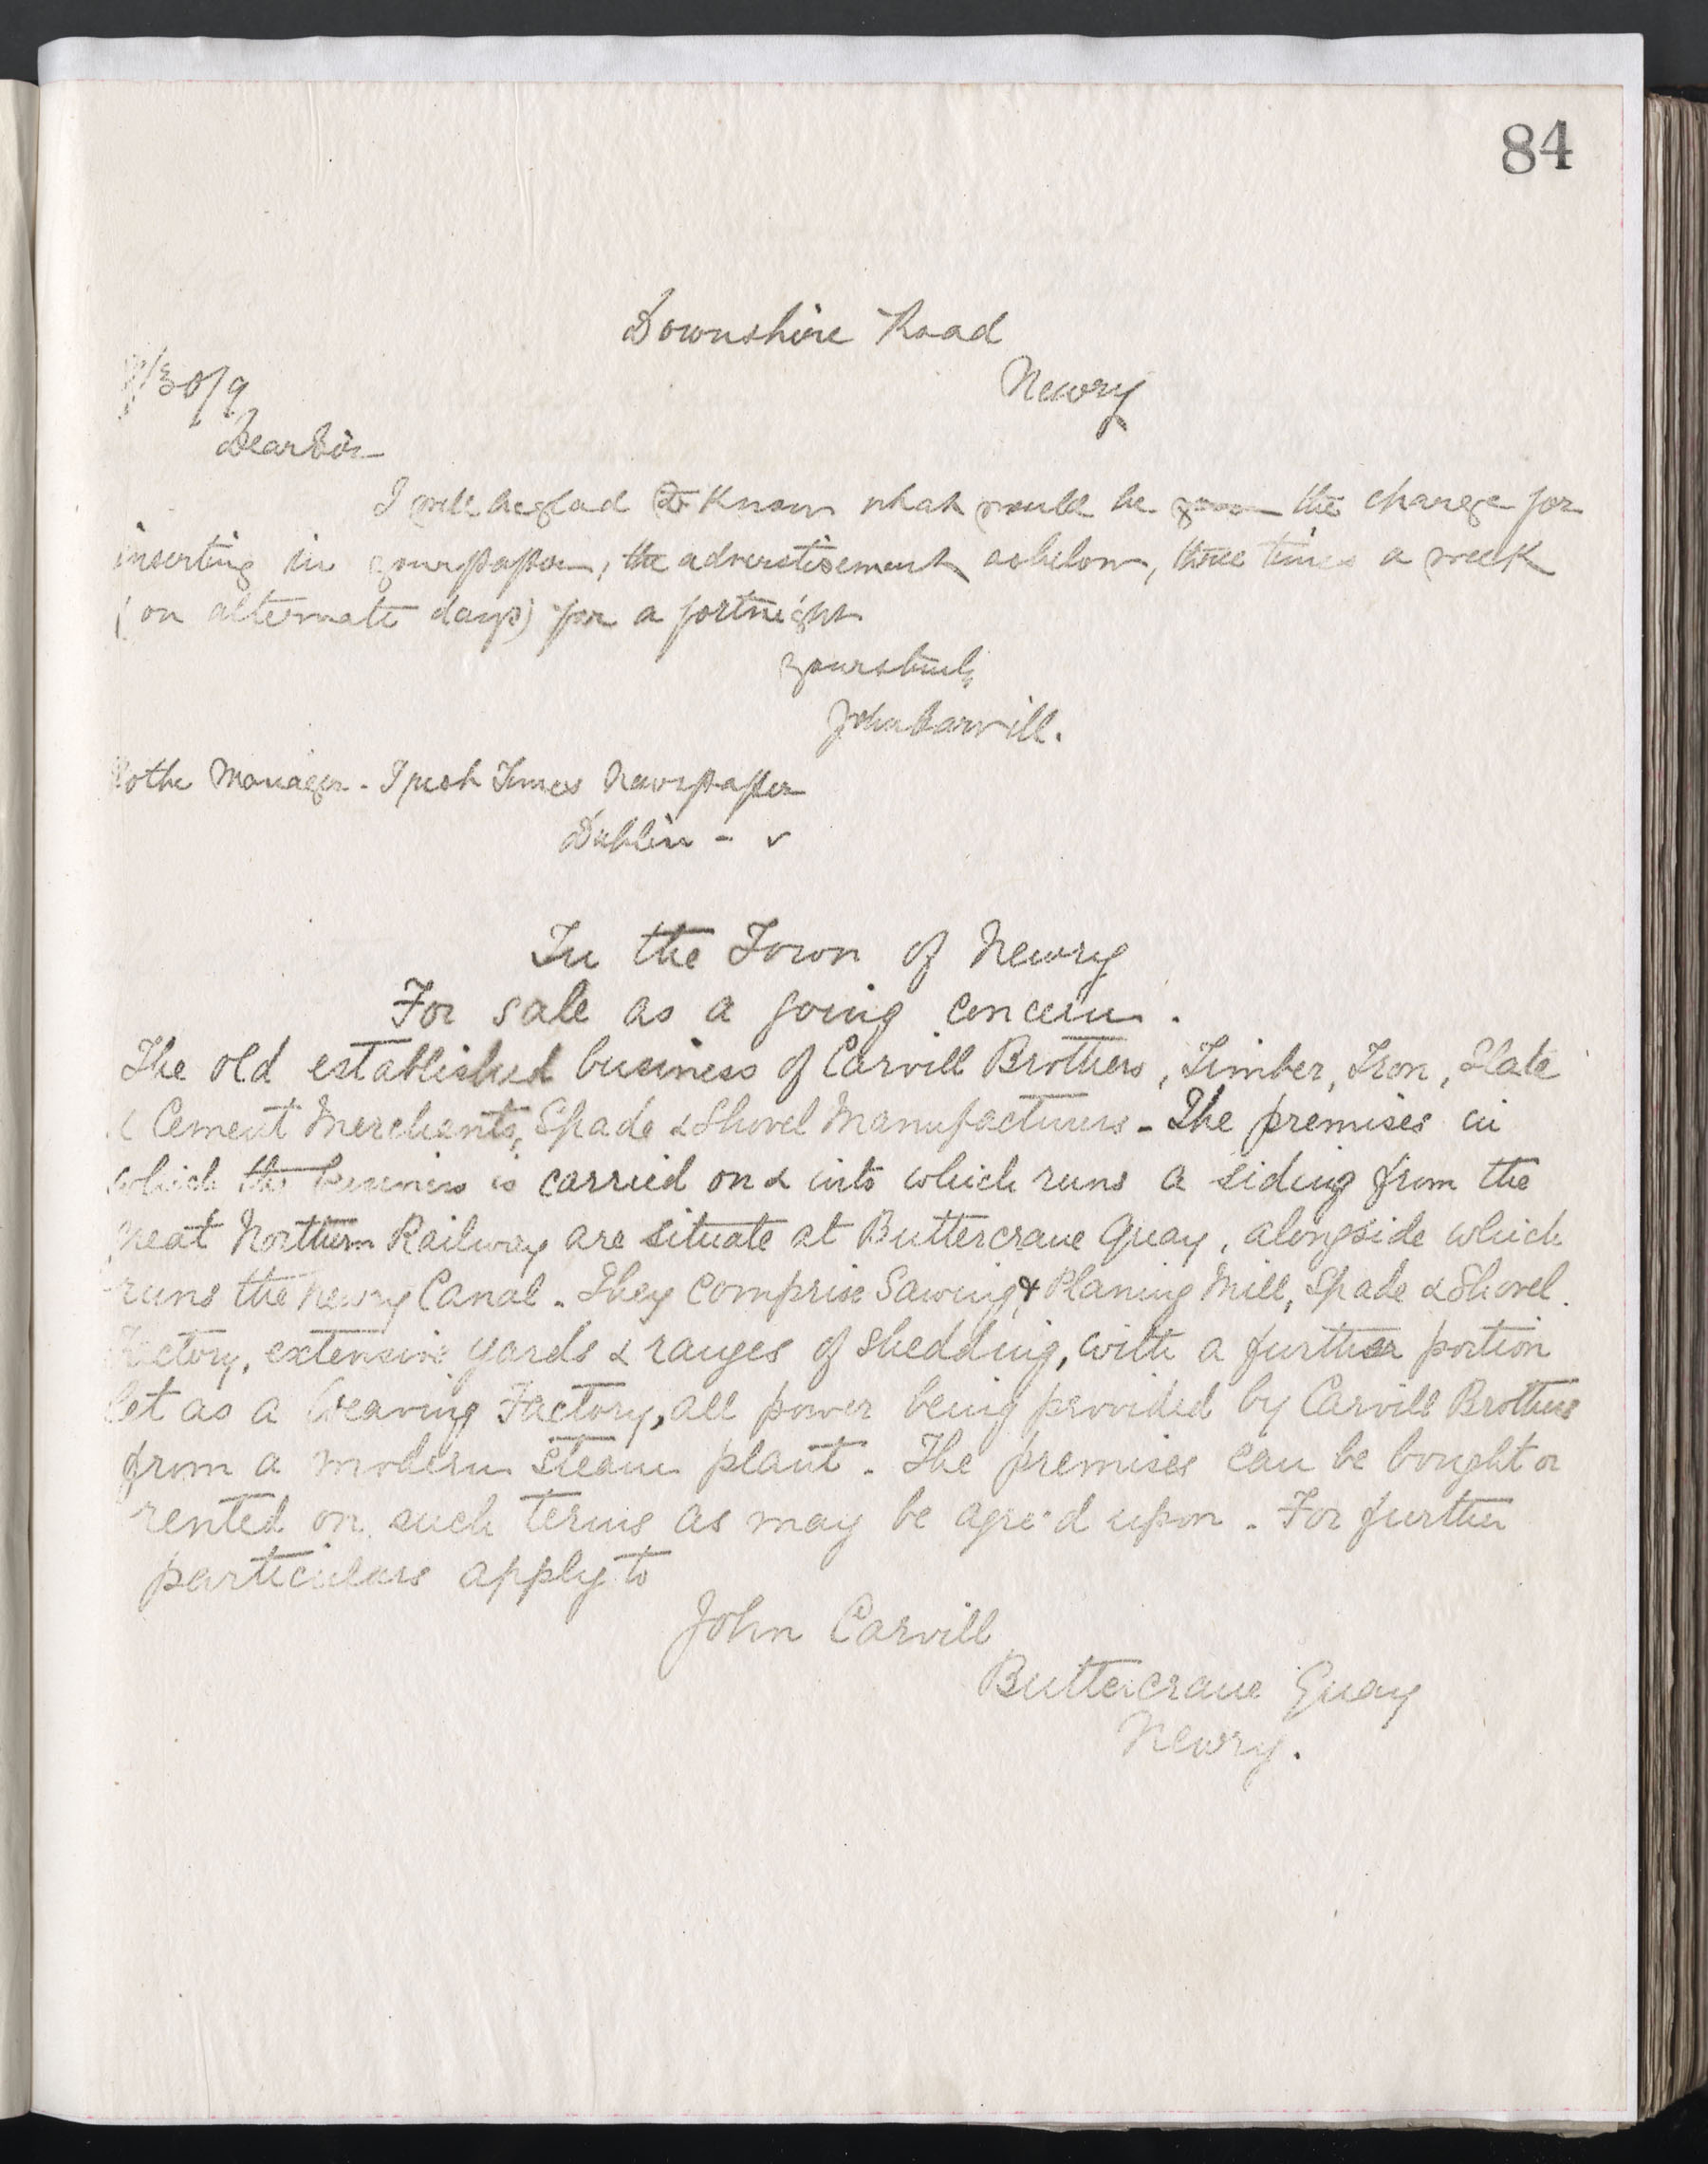 84
Downshire Road
Newry
Dear Sir
I will be glad to know what would be your the charge for
inserting in your paper, the adverstisement as below, three times a week
(on alternate days) for a fortnight
yours truly
John Carvill.
To the Manager - Irish Times Newspaper
Dublin -
In the Town of Newry
For sale as a going concern.
The old established business of Carvill Brothers, Timber, Iron, Slate
& Cement Merchants, Spade & Shovel Manufacturers - The premises in
which the business is carried on & into which runs a siding from the
Great Northern Railway are situate at Buttercrane Quay, alongside which
runs the Newry Canal - They comprise Sawing & Planing Mill, Spade & Shovel
Factory, extensive yards & ranges of shedding, with a further portion
let as a Weaving Factory, all power being provided by Carvill Brothers
from a modern steam plant - The premises can be bought or
rented on such terms as may be agreed upon - For further
particulars apply to
John Carvill
Buttercrane Quay
Newry.